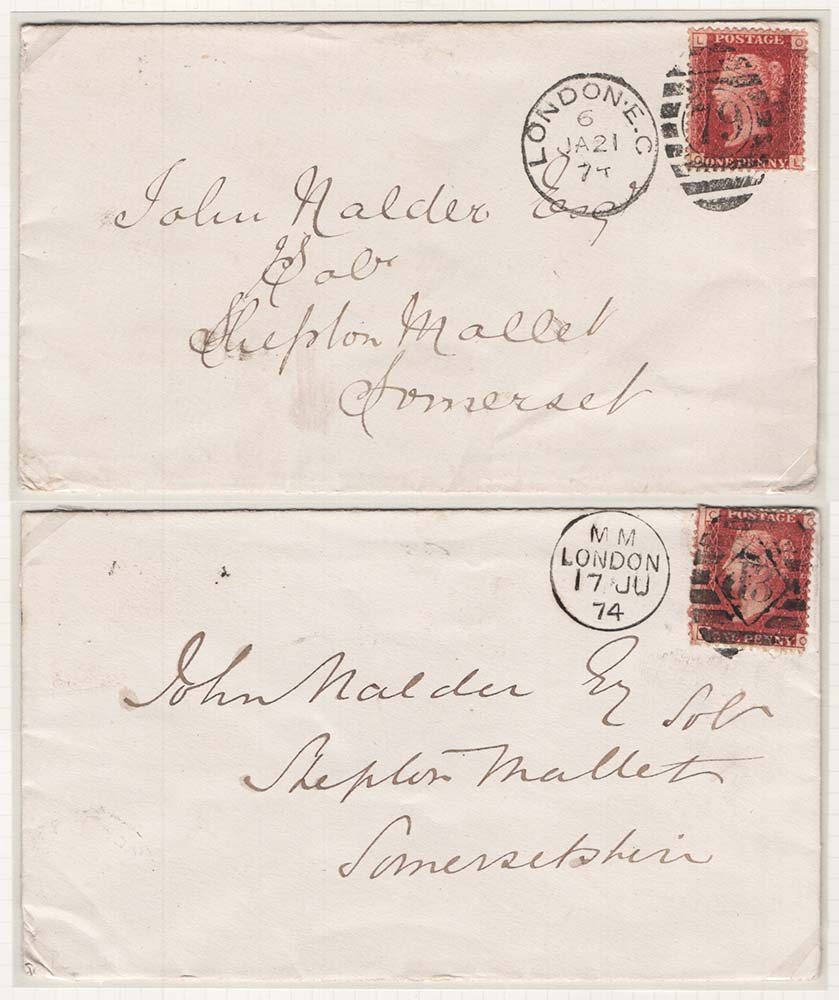 L POSTAGE O
LONDON·E.C
6
JA21
74
79
O ONE PENNY L
John Nalder Esqr
Solr
Shepton Mallet
Somerset
C POSTAGE
MM
LONDON
17 JU
74
ONE PENNY C
John Nalder Esq Solr
Shepton Mallet
Somersetshire